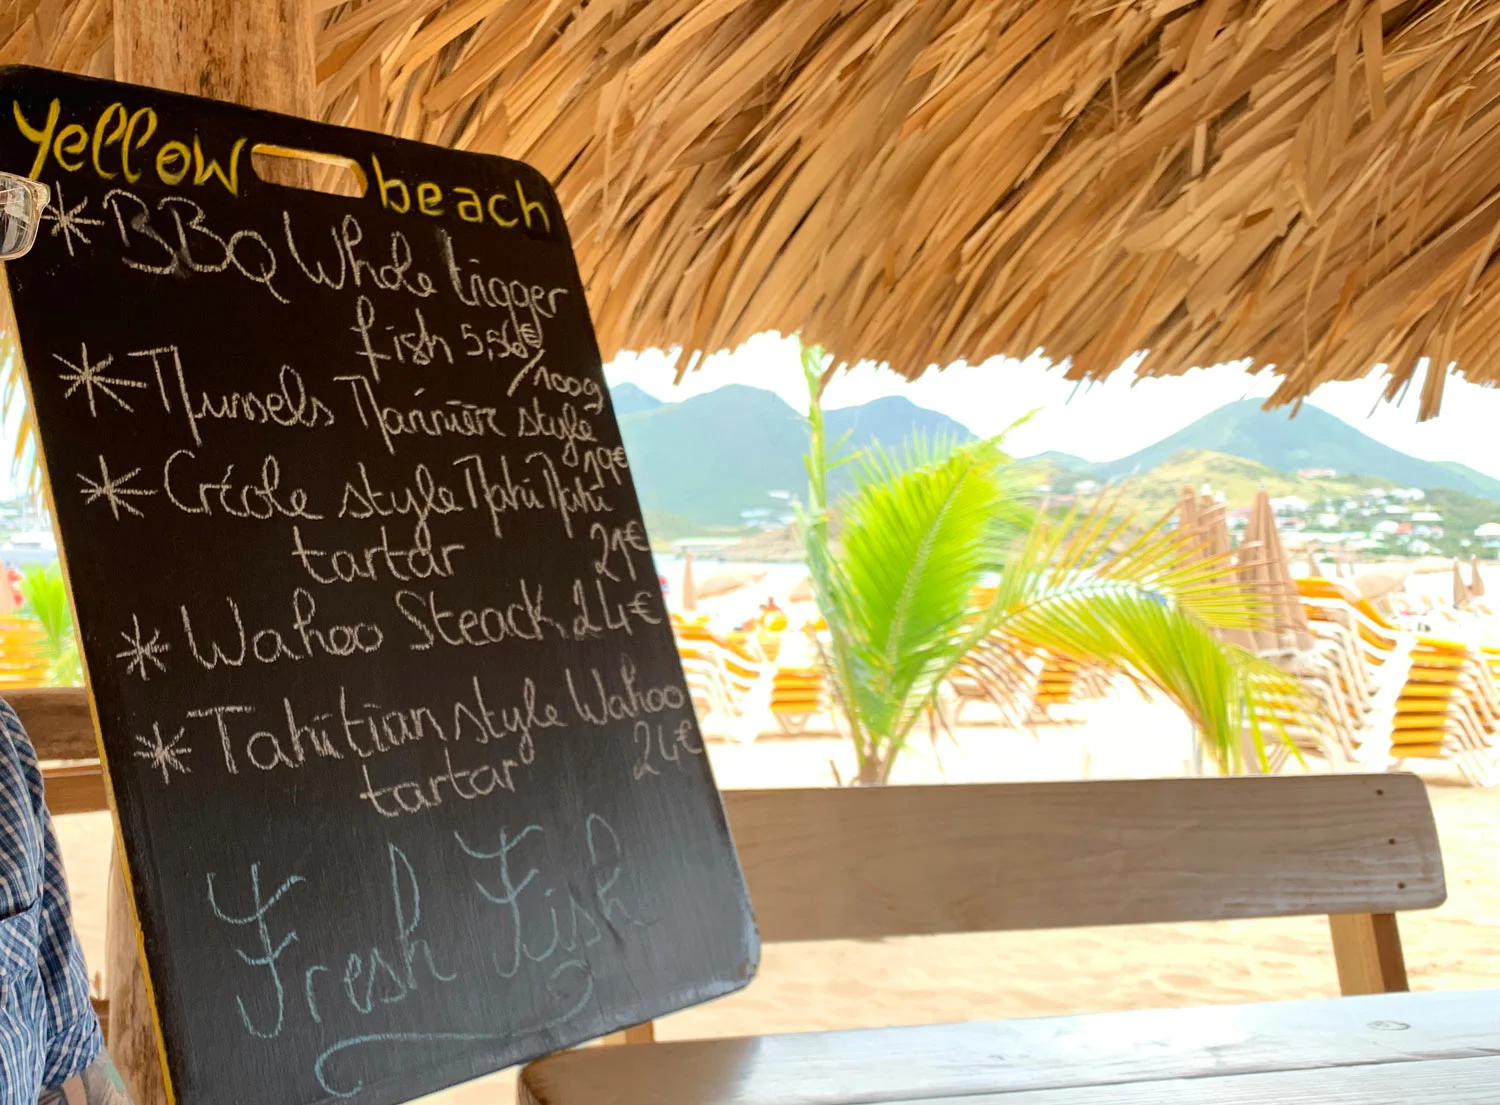 Yellow beach
* BBQ Whole trigger
fish 5,50€
/100g
* Mussels Marinière style
19€
* Créole style Mahi Mahi
tartar 21€
* Wahoo Steack 24€
* Tahitian style Wahoo
tartar 24€
Fresh Fish